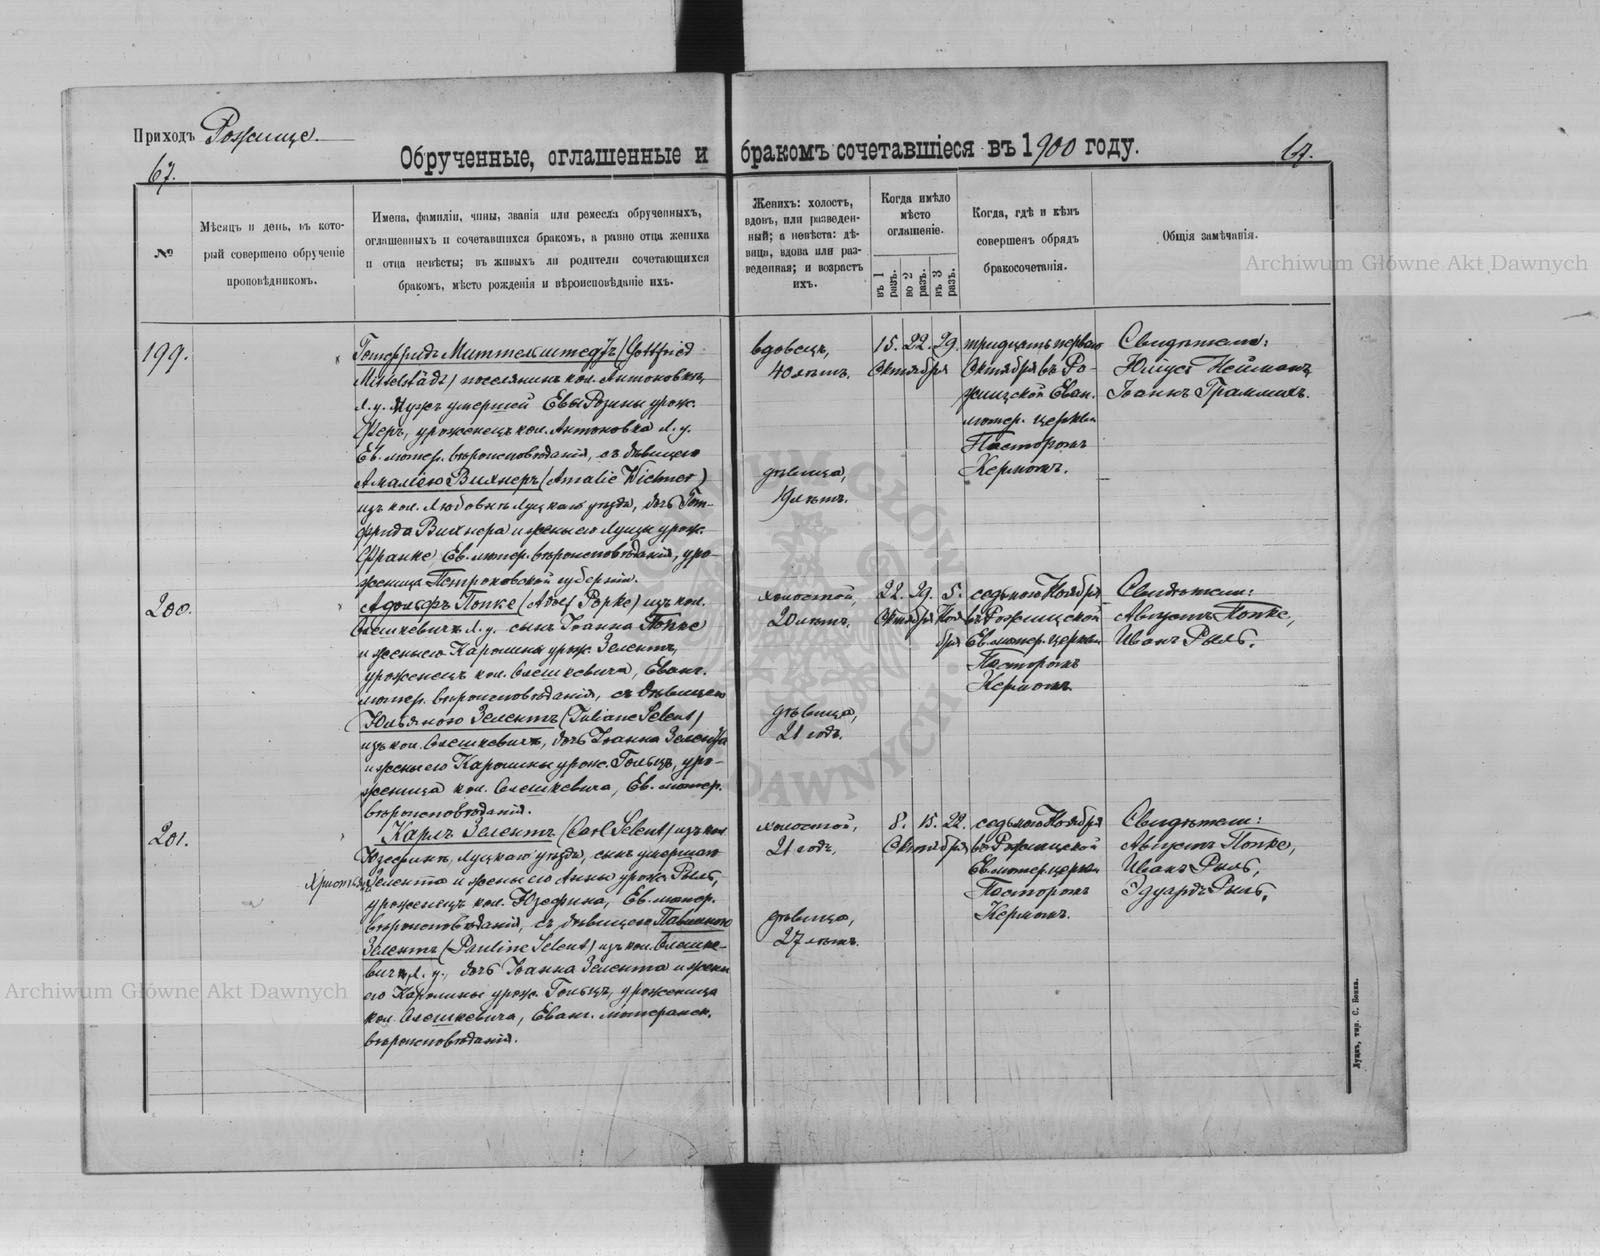 Приходъ Рожище.
67.
Обрученные, оглашенные и бракомъ сочетавшіеся въ 1900 году.
№
Мѣсяцъ и день, въ кото-
рый совершено обрученіе
проповѣдникомъ.
Имена, фамиліи, чины, званія или ремесла обрученныхъ,
оглашенныхъ и сочетавшихся бракомъ, а равно отца жениха
и отца невѣсты; въ живыхъ ли родители сочетающихся
бракомъ, мѣсто рожденія и вѣроисповѣданіе ихъ.
Женихъ: холостъ,
вдовъ, или разведен-
ный; а невѣста: дѣ-
вица, вдова или раз-
веденная; и возрастъ
ихъ.
Когда имѣло
мѣсто
оглашеніе.
въ 1 разъ.
во 2 разъ.
въ 3 разъ.
Когда, гдѣ и кѣмъ
совершенъ обрядъ
бракосочетанія.
Общія замѣчанія.
Archiwum Główne Akt Dawnych
199.
Готфридъ Миттельштедтъ (Gottfried
Mittelstädt) поселянинъ кол. Антоновки,
Л. у. Мужъ умершей Евы Розины урож.
уроженецъ кол. Антоновка Л. у.
Ев. лютер. вѣроисповѣданія, съ дѣвицею
Амаліею Вихнеръ (Amalie Wichner)
изъ кол. Любовкъ Луцкаго уѣзда, дочь Гот-
фрида Вихнера и жены его Луизы урож.
Франке, Ев. лютер. вѣроисповѣданія, уро-
женица Петроковской губерніи.
вдовецъ,
40 лѣтъ.
дѣвица,
19 лѣтъ.
15. 22. 29.
Октября
тридцать перваго
Октября въ Ро-
жищской Еван.
лютер. церкви
Пасторомъ
Кермомъ.
Свидѣтели:
Юлiусъ Нейманъ,
Іоаннъ Граммихъ.
200.
Адольфъ Попке (Adolf Popke) изъ кол.
Олешкевичъ Л. у. сынъ Іоанна Попке
и жены его Каролины урож. Зелентъ,
уроженецъ кол. Олешкевича, Еванг.
лютер. вѣроисповѣданія, съ дѣвицею
Юльяною Зелентъ (Juliane Selent)
изъ кол. Олешкевичъ, дочь Іоанна Зелента
и жены его Каролины урож. Гольцъ, уро-
женица кол. Олешкевича, Ев. лютер.
вѣроисповѣданія.
холостой,
20 лѣтъ.
дѣвица,
21 годъ.
22. 29. 5.
Октября Ноя
бря
седьмого Ноября
въ Рожищской
Ев. лютер. церкви
Пасторомъ
Кермомъ.
Свидѣтели:
Августъ Попке,
Иванъ Рыль.
201.
Карлъ Зелентъ (Carl Selent) изъ кол.
Юзефинъ, Луцкаго уѣзда, сынъ умершаго
Зелента и жены его Анны урож. Рыль,
уроженецъ кол. Юзефина, Ев. лютер.
вѣроисповѣданія, съ дѣвицею Павлиною
Зелентъ (Pauline Selent) изъ кол. Олешке-
вичъ, Л. у., дочь Іоанна Зелента и жены
его Каролины урож. Гольцъ, уроженица
кол. Олешкевича, Еванг. лютеранск.
вѣроисповѣданія.
холостой,
21 годъ,
дѣвица,
27 лѣтъ.
8. 15. 22.
Октября
седьмого Ноября
въ Рожищской
Ев. лютер. церкви
Пасторомъ
Кермомъ.
Свидѣтели:
Августъ Попке,
Иванъ Рыль,
Эдуардъ Рыль.
Archiwum Główne Akt Dawnych
Луцкъ, тип. С. Бокка.